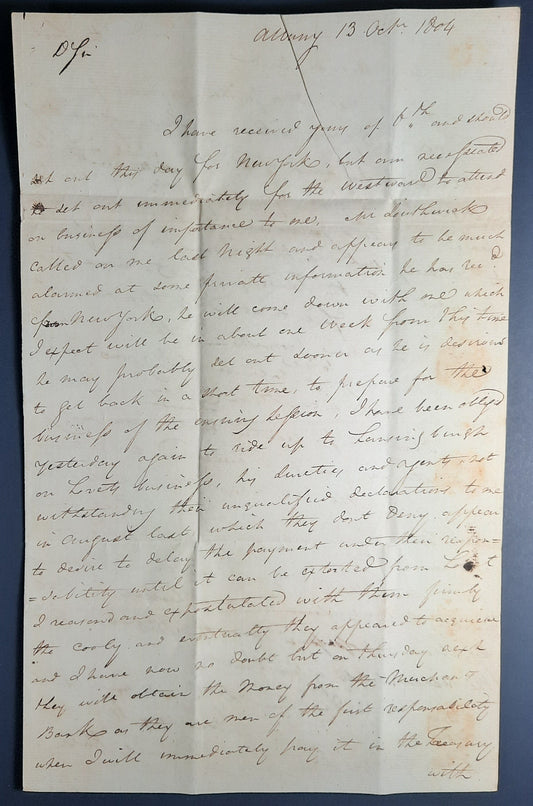 Albany 13 Octr. 1804
D Sir
I have received yours of 6th and should
set out this day for New York, but am necessitated
to set out immediately for the Westward to attend
on business of importance to me, Mr Southwick
called on me last Night and appears to be much
alarmed at some private information he has recd.
from New York, he will come down with me which
I expect will be in about one week from this time
he may probably set out sooner as he is desirous
to get back in a short time, to prepare for the
business of the ensuing session, I have been obliged
yesterday again to ride up to Lansingburgh
on Lovets business, his sureties and agents not
withstanding their unqualified declarations to me
in August last which they dont Deny, appear
to desire to delay the payment under their respon=
=sibility until it can be extorted from Lovet
I reasond and expostulated with them firmly
tho cooly and eventually they appeared to acquiesce
and I have now no doubt but on thursday next
they will obtain the Money from the Merchants
Bank as they are men of the first responsibility
when I will immediately pay it in the Treasury
with